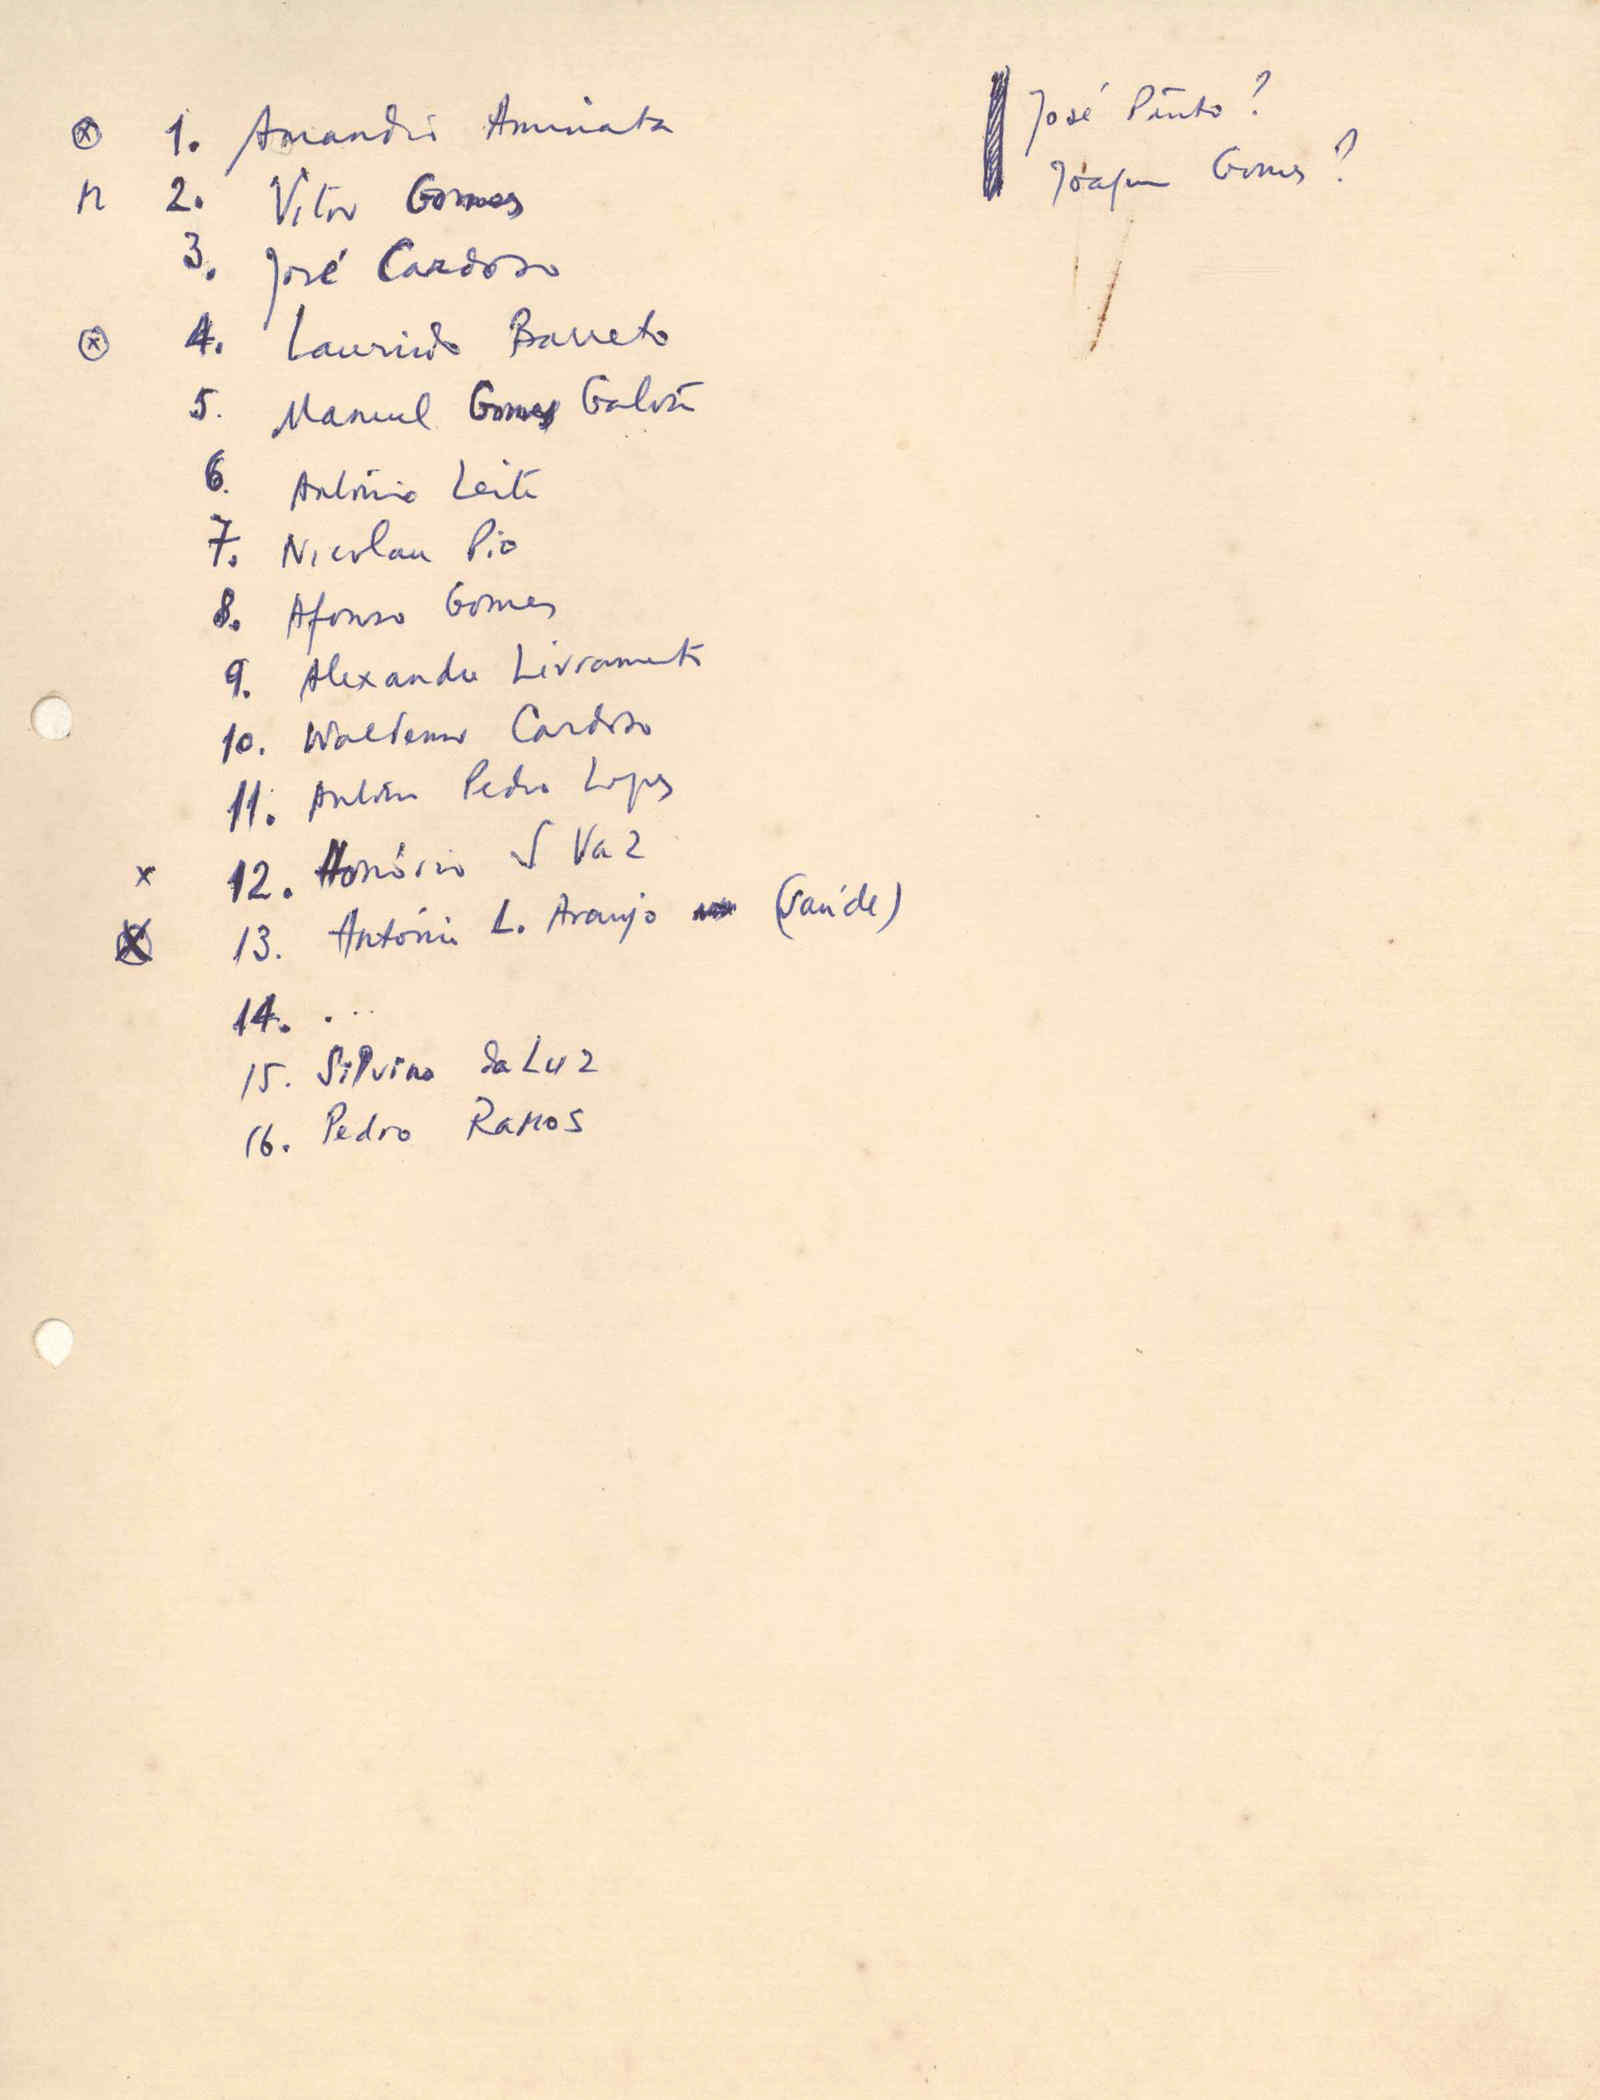 1. Amandio Aminata
n 2. Vitor Gomes
3. José Cardoso
4. Laurindo Barreto
5. Manuel Gomes Galvão
6. António Leite
7. Nicolau Pio
8. Afonso Gomes
9. Alexandre Livramento
10. Waldemar Cardoso
11. António Pedro Lopes
x 12. Honório S Vaz
x 13. António L. Araujo (saúde)
14. ...
15. Silvino da Luz
16. Pedro Ramos
José Pinto?
Joaquim Gomes?